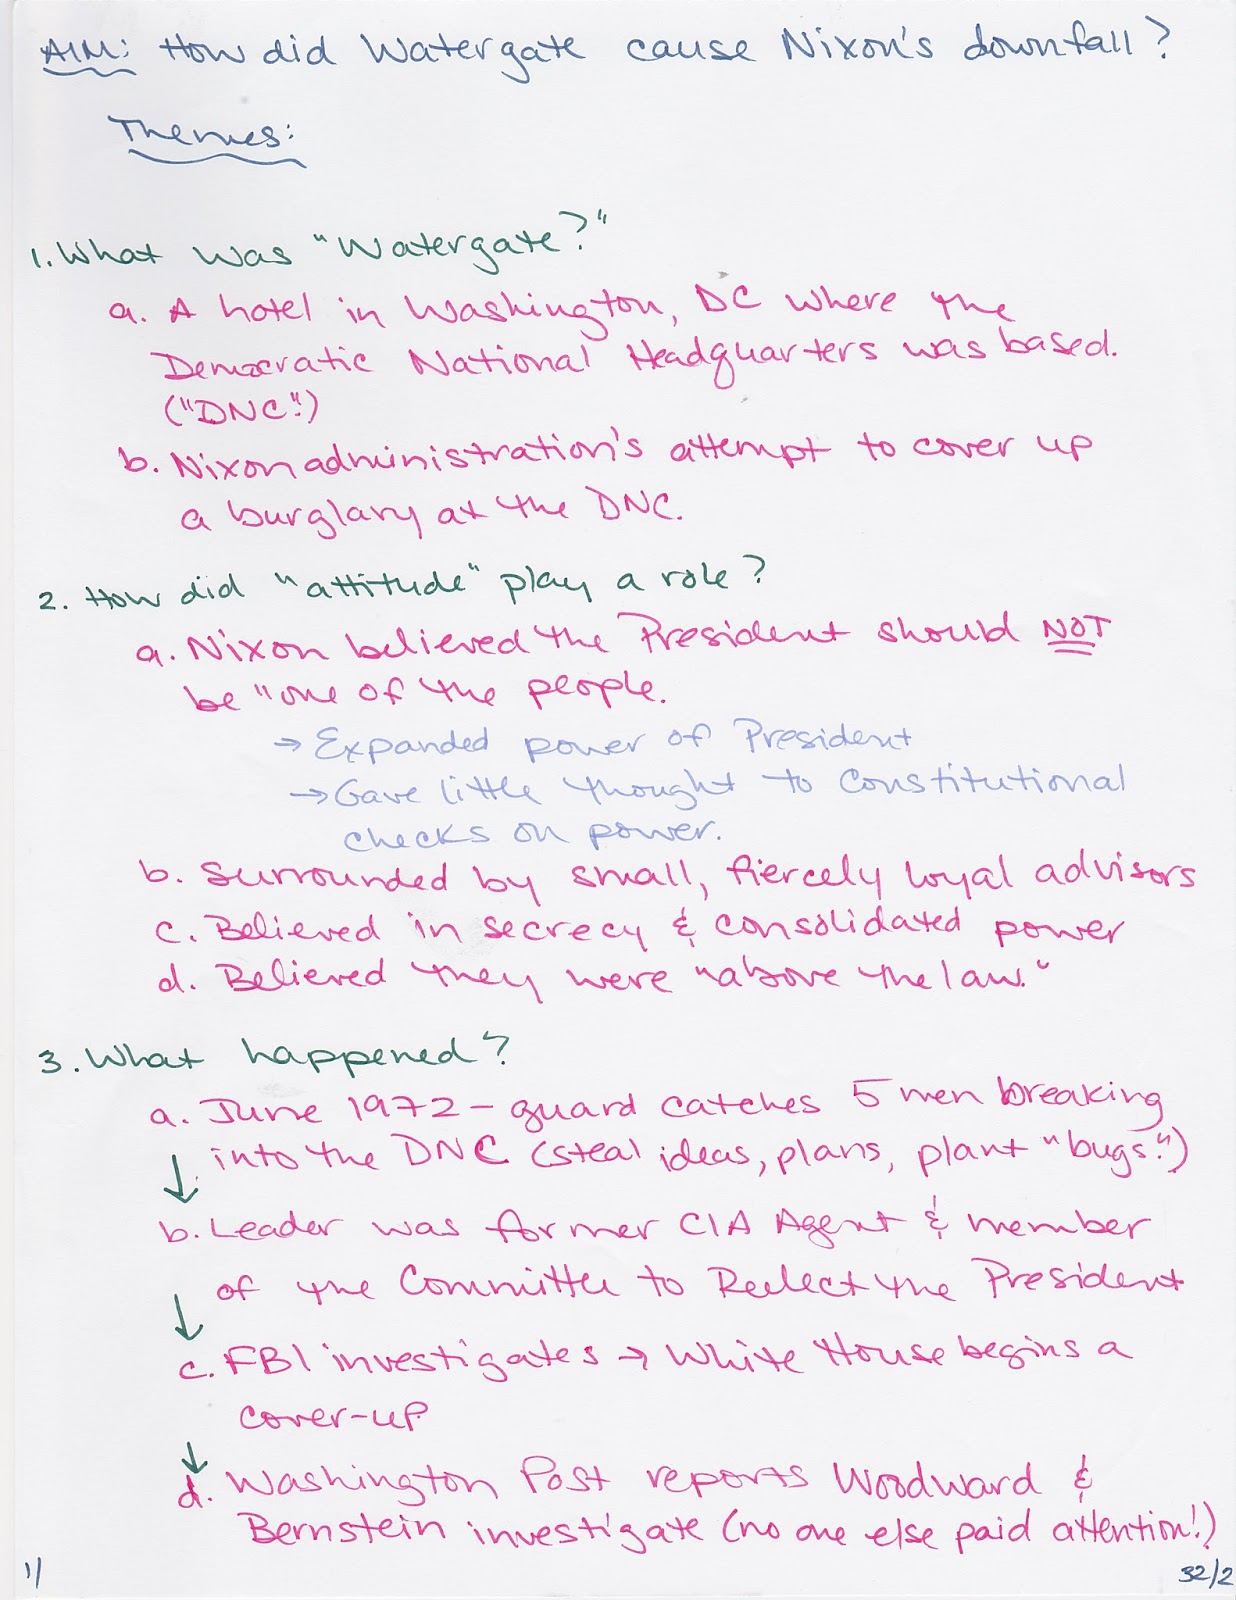 AIM: How did Watergate cause Nixon's downfall?
Themes:
1. What was "Watergate?"
a. A hotel in Washington, DC where the
Democratic National Headquarters was based.
("DNC.")
b. Nixon administration's attempt to cover up
a burglary at the DNC.
2. How did "attitude" play a role?
a. Nixon believed the President should NOT
be "one of the people.
→ Expanded power of President
→ Gave little thought to Constitutional
checks on power.
b. Surrounded by small, fiercely loyal advisors
c. Believed in secrecy & consolidated power
d. Believed they were "above the law."
3. What happened?
a. June 1972 - guard catches 5 men breaking
↓ into the DNC (steal ideas, plans, plant "bugs.")
b. Leader was former CIA Agent & member
of the Committee to Reelect the President
↓
c. FBI investigates → White House begins a
cover-up
↓
d. Washington Post reports Woodward &
Bernstein investigate (no one else paid attention!)
1/
32/2